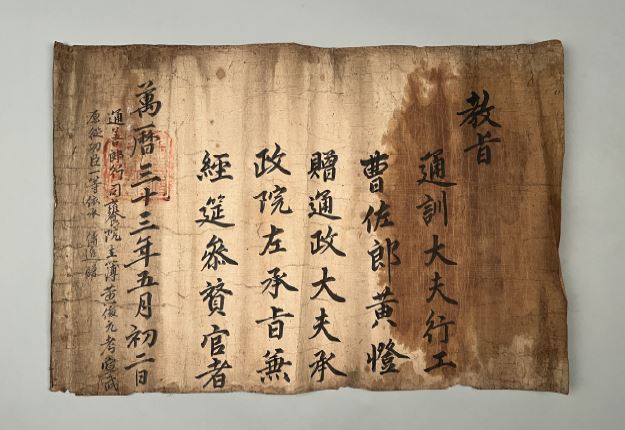 教旨
通訓大夫行工
曹佐郎黃㬓
贈通政大夫承
政院左承旨兼
經筵參贊官者
萬曆三十三年五月初二日
通善郎行司饔院主簿黃俊元考宣武
原從功臣一等依承 傳追贈